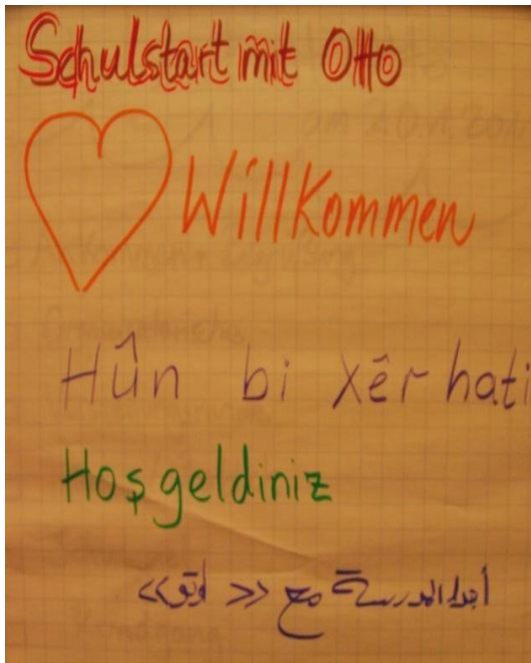 Schulstart mit Otto
Willkommen
Hûn bi xêr hati
Hoşgeldiniz
أبدأ المدرسة مع << اوتو >>